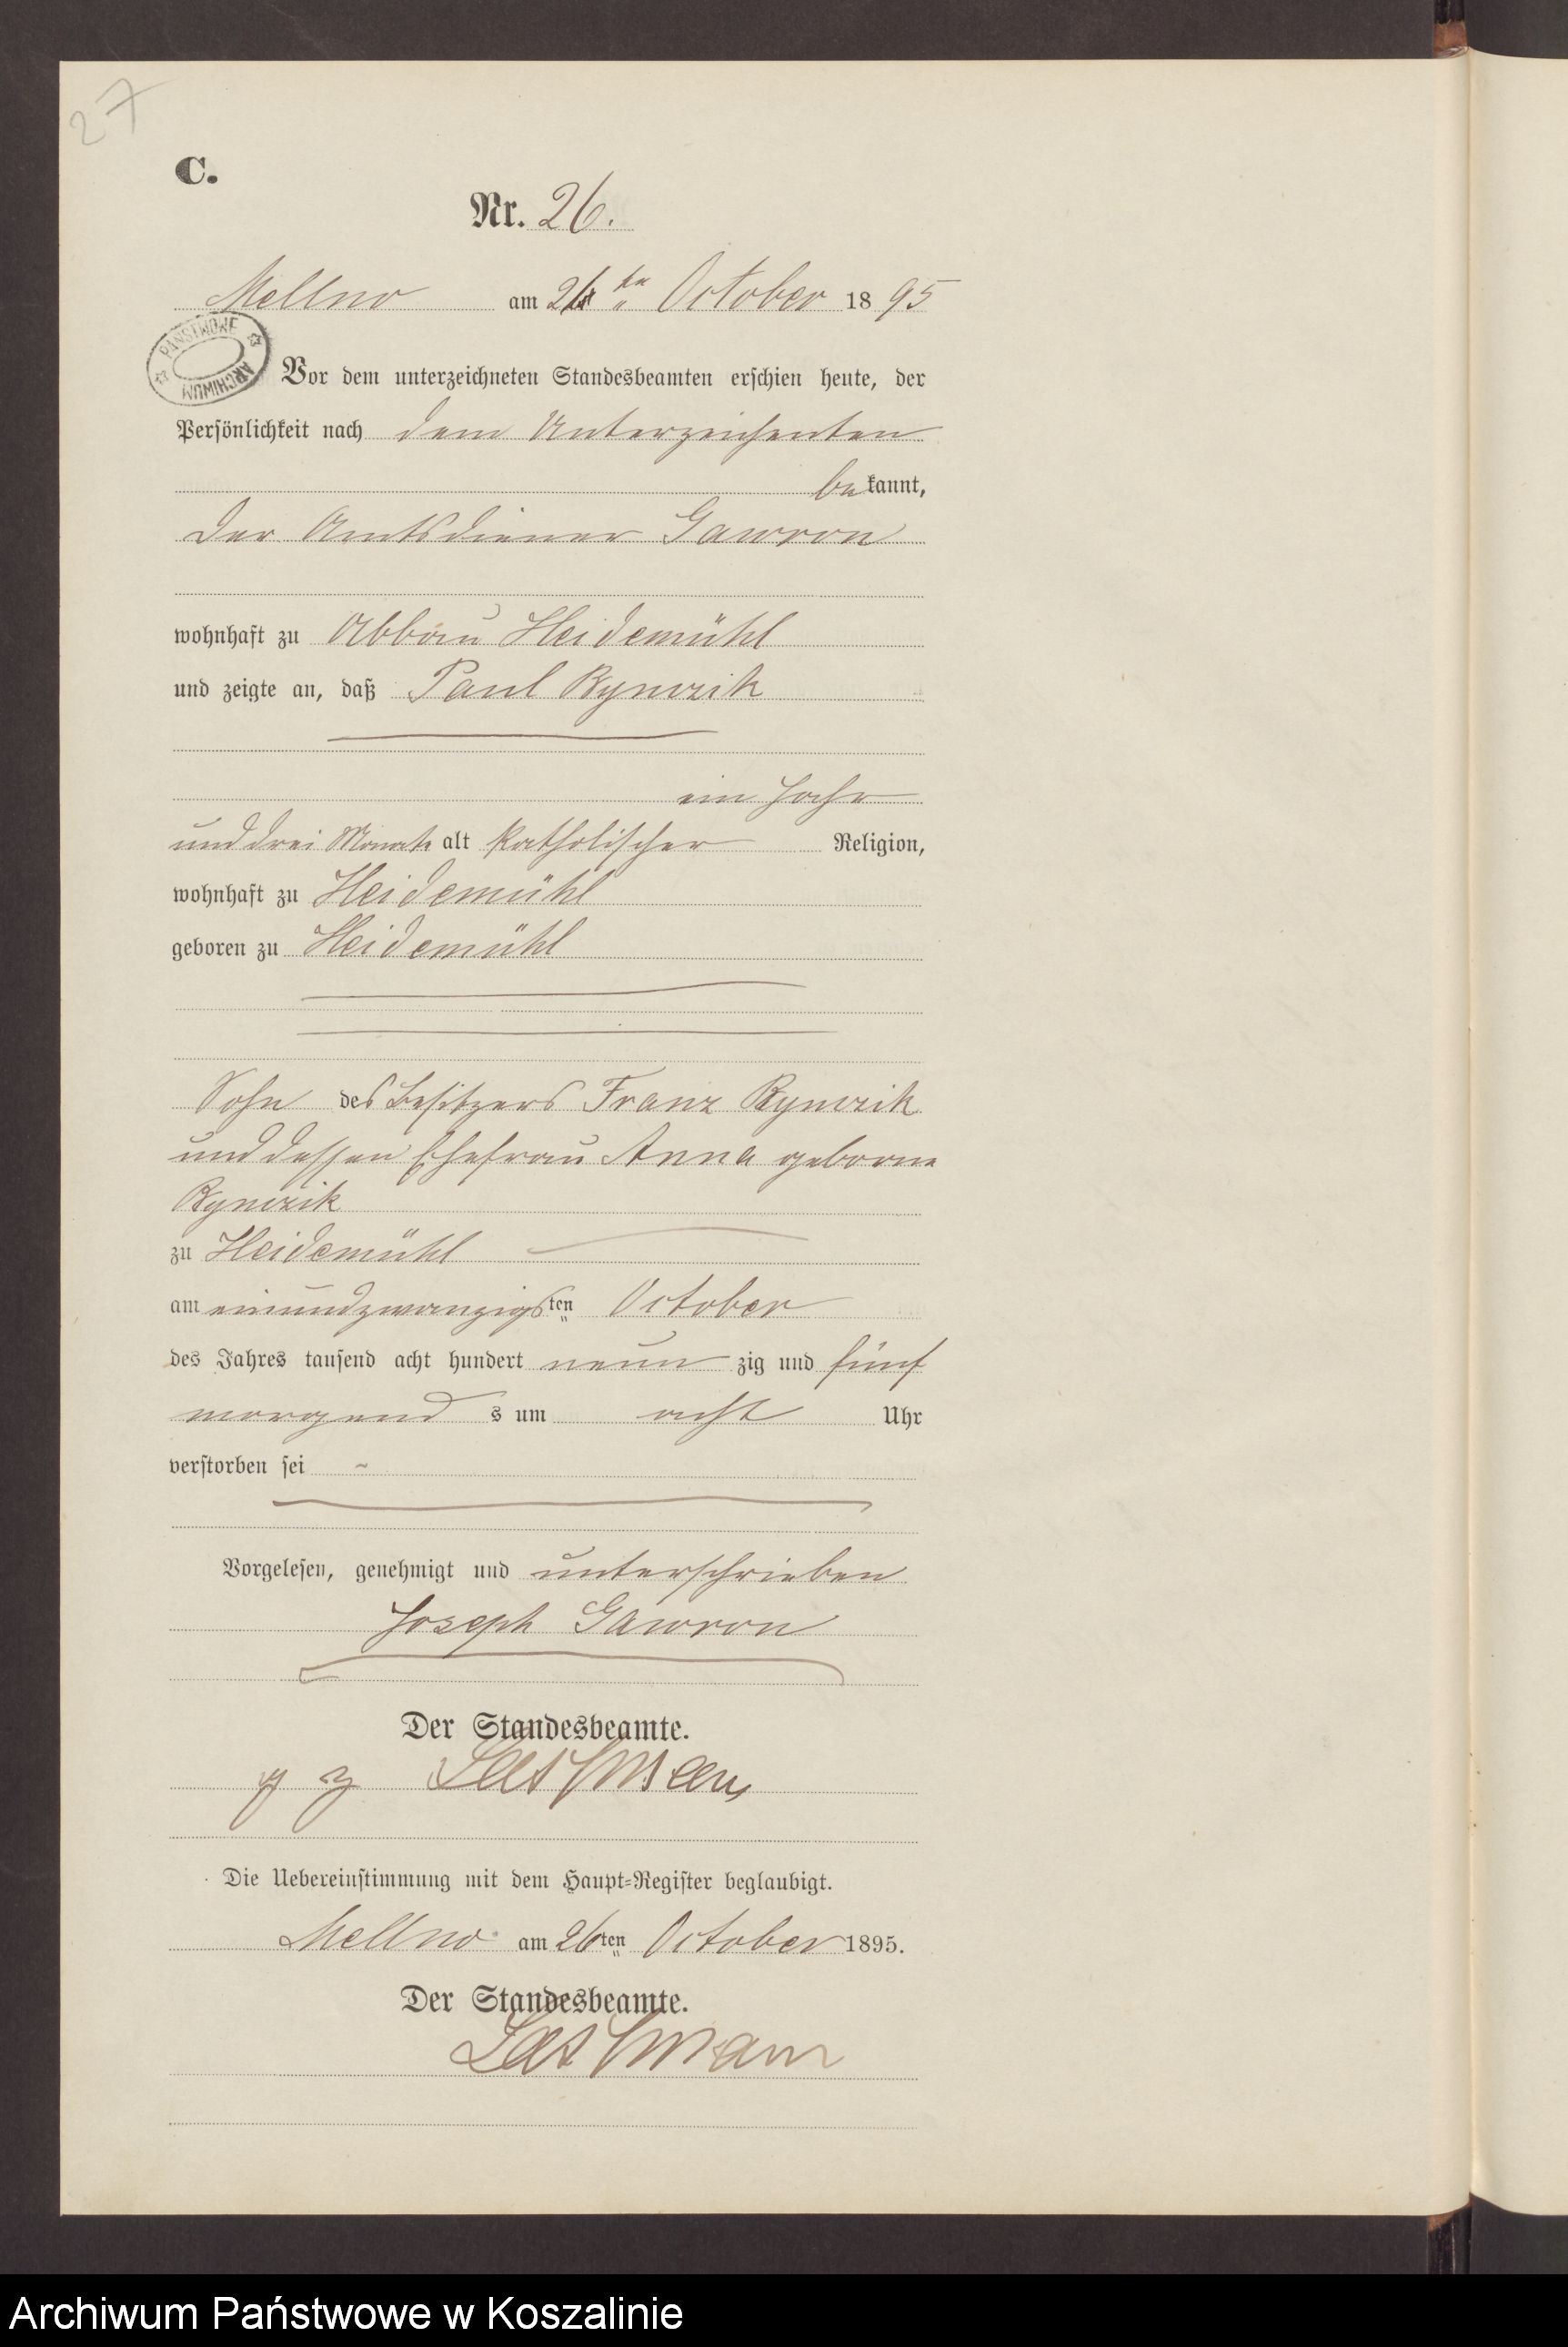 27
C.
Nr. 26.
Mellno am 26ten October 1895
PAŃSTWOWE ARCHIWUM
Vor dem unterzeichneten Standesbeamten erschien heute, der
Persönlichkeit nach dem Unterzeichenten
bekannt,
der Amtsdiener Gawron
wohnhaft zu Abbau Heidemühl
und zeigte an, daß Paul
ein Jahr
und drei Monate alt katholischer Religion,
wohnhaft zu Heidemühl
geboren zu Heidemühl
Sohn des Besitzers Franz
und dessen Ehefrau Anna geborne
zu Heidemühl
am einundzwanzigsten October
des Jahres tausend acht hundert neunzig und fünf
morgends um acht Uhr
verstorben sei -
Vorgelesen, genehmigt und unterschrieben
Joseph Gawron
Der Standesbeamte.
Die Uebereinstimmung mit dem Haupt-Register beglaubigt.
Mellno am 26ten October 1895.
Der Standesbeamte.
Archiwum Państwowe w Koszalinie